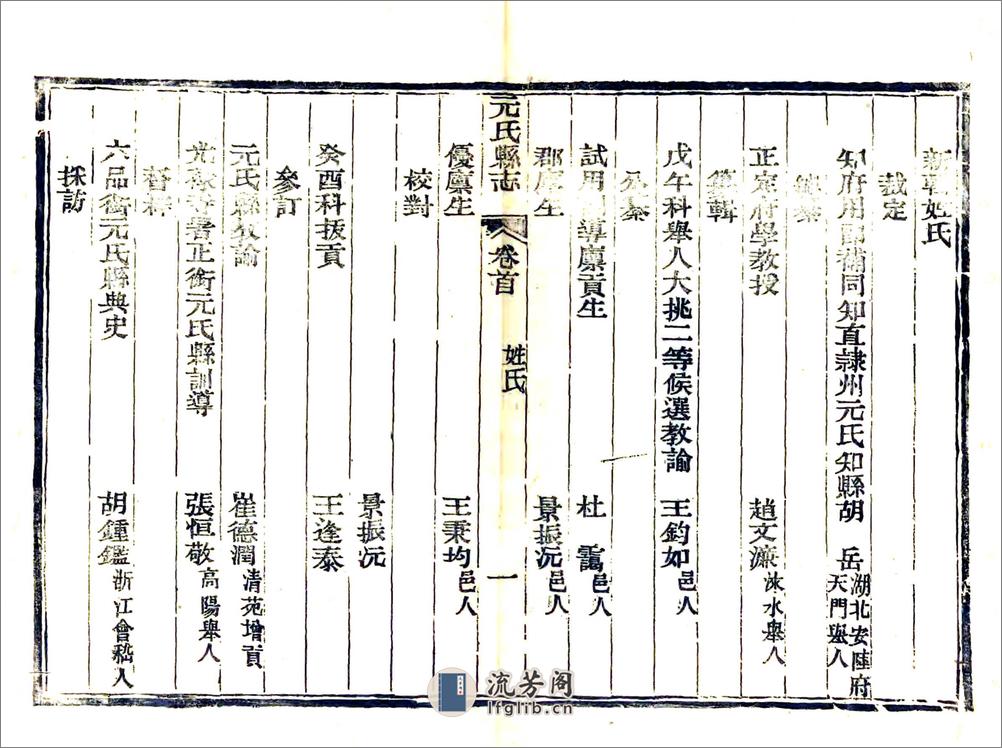 新修姓氏
裁定
知府用即補同知直隸州元氏知縣胡 岳 湖北安陸府天門舉人
總纂
正定府學教授 趙文濂 淶水舉人
纂輯
戊午科舉人大挑二等候選教諭 王鈞如 邑人
分纂
試用訓導廩貢生 杜 靄 邑人
郡廩生 景振沅 邑人
元氏縣志 卷首 姓氏 一
優廩生 王秉均 邑人
校對
景振沅
癸酉科拔貢 王逢泰
參訂
元氏縣教諭 崔德潤 清苑增貢
光祿寺署正銜元氏縣訓導 張恒敬 高陽舉人
督梓
六品銜元氏縣典史 胡鍾鑑 浙江會嵇人
採訪
流芳阁
lfglib.cn